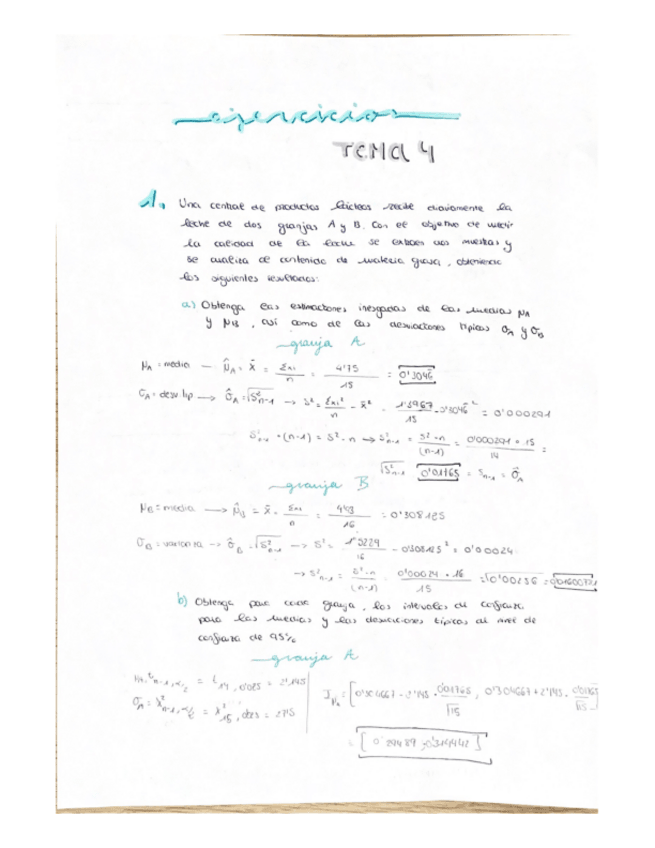 ejercicios
TEMA 4
1. Una central de productos lácteos recibe diariamente la
leche de dos granjas A y B. Con el objetivo de medir
la calidad de la leche se extraen dos muestras y
se analiza el contenido de materia grasa, obteniendo
los siguientes resultados:
a) Obtenga las estimaciones insesgadas de las medias μA
y μB, así como de las desviaciones típicas σA y σB
granja A
μA = media — μ̂A = x̄ = Σxi/n = 4'75/15 = 0'3046
σA = desv. tip → σ̂A = √S²n-1 → S² = Σxi²/n - x̄² = 1'3967/15 - 0'3046² = 0'000291
S²n-1 · (n-1) = S² · n → S²n-1 = S²·n/(n-1) = 0'000291 · 15/14 =
√S²n-1 0'01765 = Sn-1 = σ̂A
granja B
μB = media → μ̂B = x̄ = Σxi/n = 4'93/16 = 0'308125
σB = varianza → σ̂B = √S²n-1 → S² = 1'5229/16 - 0'308125² = 0'00024
→ S²n-1 = S²·n/(n-1) = 0'00024 · 16/15 = √0'00256 =
b) Obtenga para cada granja, los intervalos de confianza
para las medias y las desviaciones típicas al nivel de
confianza de 95%
granja A
tn-1, α/2 = t14, 0'025 = 2'145
σA = χ²n-1, α/2 = χ²15, 0'025 = 27'5
IμA = [0'304667 - 2'145 · 0'01765/√15, 0'304667 + 2'145 · 0'01765/√15
= [0'29489 ; 0'314442]